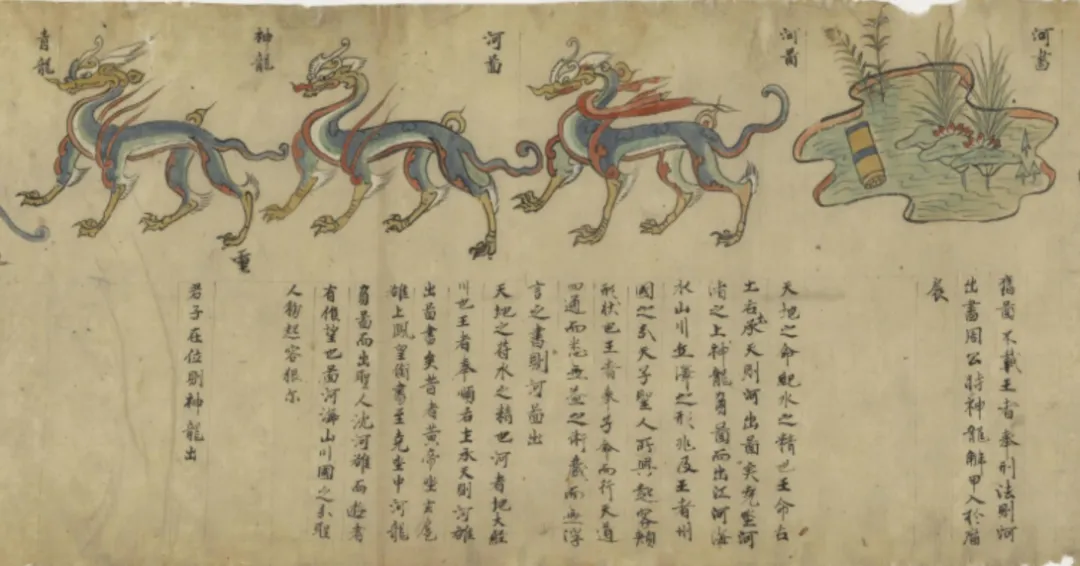 河書
舊圖不載王者奉刑法則河
出書周公時神龍解甲入於
辰
河圖
天地之命紀水之精也王命后
土右承天則河出圖矣堯坐河
渚之上神龍負圖而出江河海
水山川丘澤之形兆及王者州
國之分天子聖人所興起容顏
形狀也王者奉子命而行天道
四通而悉無益之術藏而無浮
言之書則河圖出
河圖
天地之符水之精也河者地大経
川也王者奉順后土承天則河雄
出圖書矣昔者黃帝坐玄扈
雄上鳳皇銜書至堯坐中河龍
負圖而出聖人沈河雄而遊者
有俊望也圖河海山川國之分聖
人起容狠尓
神龍
君子在位則神龍出
重
青龍